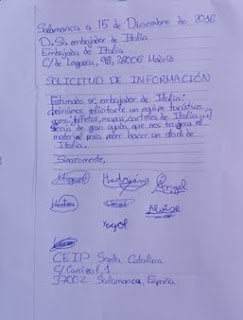 Salamanca a 15 de Diciembre de 2016
D. Sr. embajador de Italia
Embajada de Italia
C/ de Lagasca, 98, 28006 Madrid
SOLICITUD DE INFORMACIÓN
Estimado sr. embajador de Italia:
solicitarle un apoyo turístico
como: folletos, mapas, carteles de Italia y
sería de gran ayuda que nos trajera el
material para poder hacer un stand de
Italia.
Sinceramente,
Miguel
Rodrigo
Angel
CEIP Santa Catalina
S/ Carvajal, 1
37002 Salamanca, España